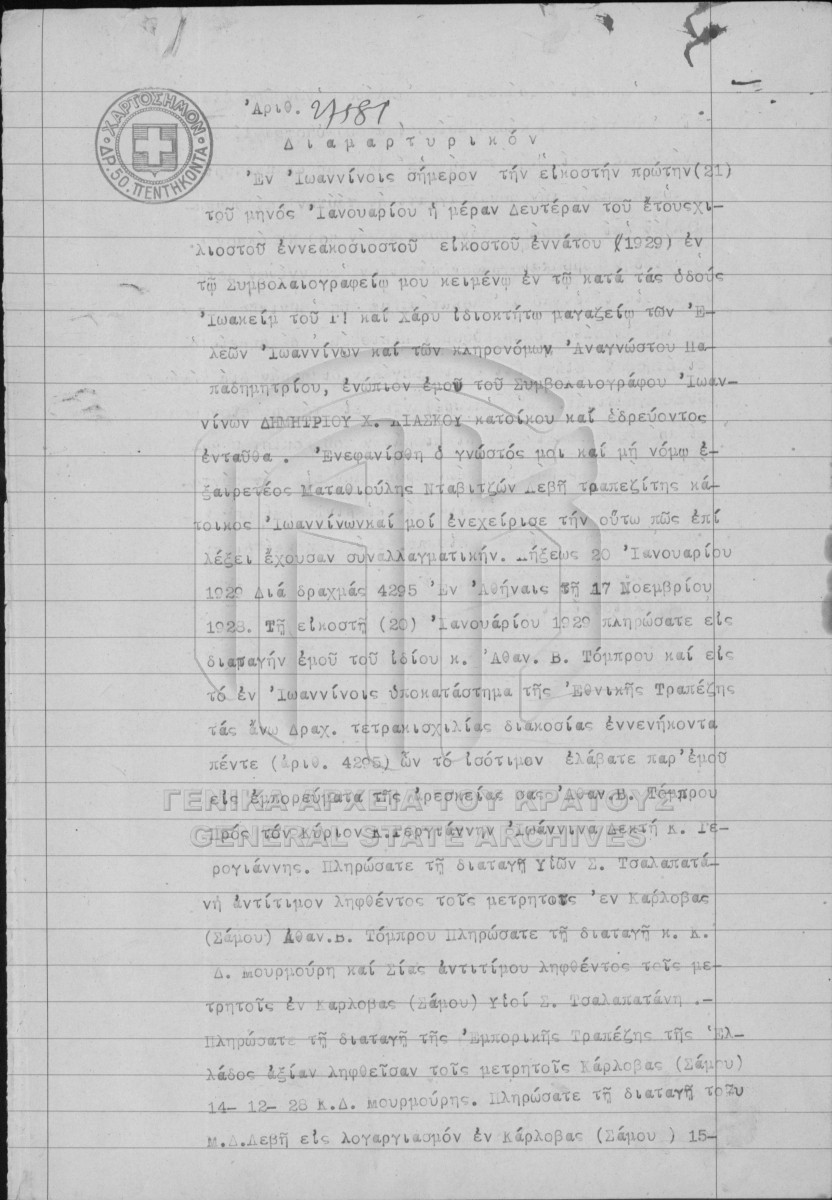 ΧΑΡΤΟΣΗΜΟΝ
ΔΡ.50.ΠΕΝΤΗΚΟΝΤΑ
Ἀριθ. 27181
Διαμαρτυρικόν
Ἐν Ἰωαννίνοις σήμερον τήν εἰκοστήν πρώτην(21)
τοῦ μηνός Ἰανουαρίου ἡ μέραν Δευτέραν τοῦ ἔτουςχι-
λιοστοῦ ἐννεακοσιοστοῦ εἰκοστοῦ ἐννάτου (1929) ἐν
τῷ Συμβολαιογραφείῳ μου κειμένῳ ἐν τῷ κατά τάς ὁδούς
Ἰωακείμ τοῦ Γ! καί Χάρυ ἰδιοκτήτω μαγαζείῳ τῶν Ἐ-
λεῶν Ἰωαννίνων καί τῶν κληρονόμων Ἀναγνώστου Πα-
παδημητρίου, ἐνώπιον ἐμοῦ τοῦ Συμβολαιογράφου Ἰωαν-
νίνων ΔΗΜΗΤΡΙΟΥ Χ. ΛΙΑΣΚΟΥ κατοίκου καί ἑδρεύοντος
ἐνταῦθα . Ἐνεφανίσθη ὁ γνώστός μοι καί μή νόμῳ ἐ-
ξαιρετέος Ματαθιούλης Νταβιτζών Λεβῆ τραπεζίτης κά-
τοικος Ἰωαννίνωνκαί μοί ἐνεχείρισε τήν οὕτω πῶς ἐπί
λέξει ἔχουσαν συναλλαγματικήν. Λήξεως 20 Ἰανουαρίου
1929 Διά δραχμάς 4295 Ἐν Ἀθήναις τῇ 17 Νοεμβρίου
1928. Τῇ εἰκοστῇ (20) Ἰανουαρίου 1929 πληρώσατε εἰς
διαταγήν ἐμοῦ τοῦ ἰδίου κ. Ἀθαν. Β. Τόμπρου καί εἰς
τό ἐν Ἰωαννίνοις ὑποκατάστημα τῆς Ἐθνικῆς Τραπέζης
τάς ἄνω Δραχ. τετρακισχιλίας διακοσίας ἐννενήκοντα
πέντε (ἀριθ. 4295) ὧν τό ἰσότιμον ἐλάβατε παρ'ἐμοῦ
εἰς ἐμπορεύματα τῆς ἀρεσκείας σας Ἀθαν.Β. Τόμπρου
Πρός τόν Κύριον Κ.Γεργιάννην Ἰωάννινα Δεκτή Κ. Γε-
ρογιάννης. Πληρώσατε τῇ διαταγῇ Υἱῶν Σ. Τσαλαπατά-
νή ἀντίτιμον ληφθέντος τοῖς μετρητοῖς Ἐν Καρλοβας
(Σάμου) Αθαν.Β. Τόμπρου Πληρώσατε τῇ διαταγῇ κ. Κ.
Δ. Μουρμούρη καί Σίας ἀντιτίμου ληφθέντος τοῖς με-
τρητοῖς ἐν Καρλοβας (Σάμου) Υἱοί Σ. Τσαλαπατάνη .-
Πληρώσατε τῇ διαταγῇ τῆς Ἐμπορικῆς Τραπέζης τῆς Ἑλ-
λάδος ἀξίαν ληφθεῖσαν τοῖς μετρητοῖς Κάρλοβας (Σάμου)
14- 12- 28 Κ.Δ. Μουρμούρης. Πληρώσατε τῇ διαταγῇ τοῦ
Μ.Δ.Λεβῆ εἰς λογαργιασμόν ἐν Κάρλοβας (Σάμου ) 15-
ΓΕΝΙΚΑ ΑΡΧΕΙΑ ΤΟΥ ΚΡΑΤΟΥΣ
GENERAL STATE ARCHIVES